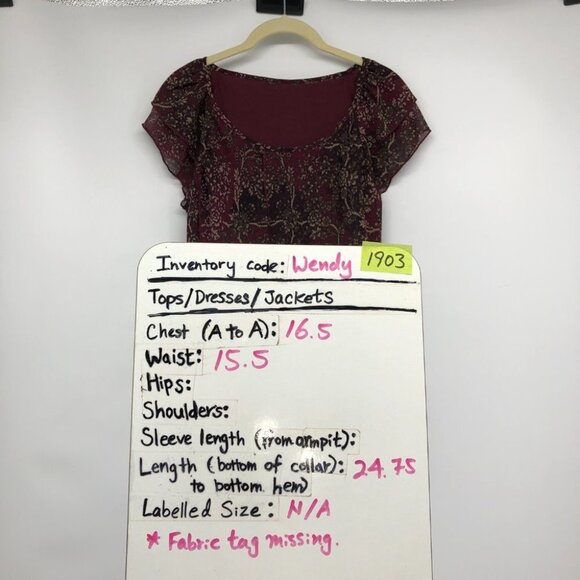 Inventory code: Wendy 1903
Tops/Dresses/Jackets
Chest (A to A): 16.5
Waist: 15.5
Hips:
Shoulders:
Sleeve length (from armpit):
Length (bottom of collar): 24.75
to bottom hem)
Labelled Size: N/A
* Fabric tag missing.